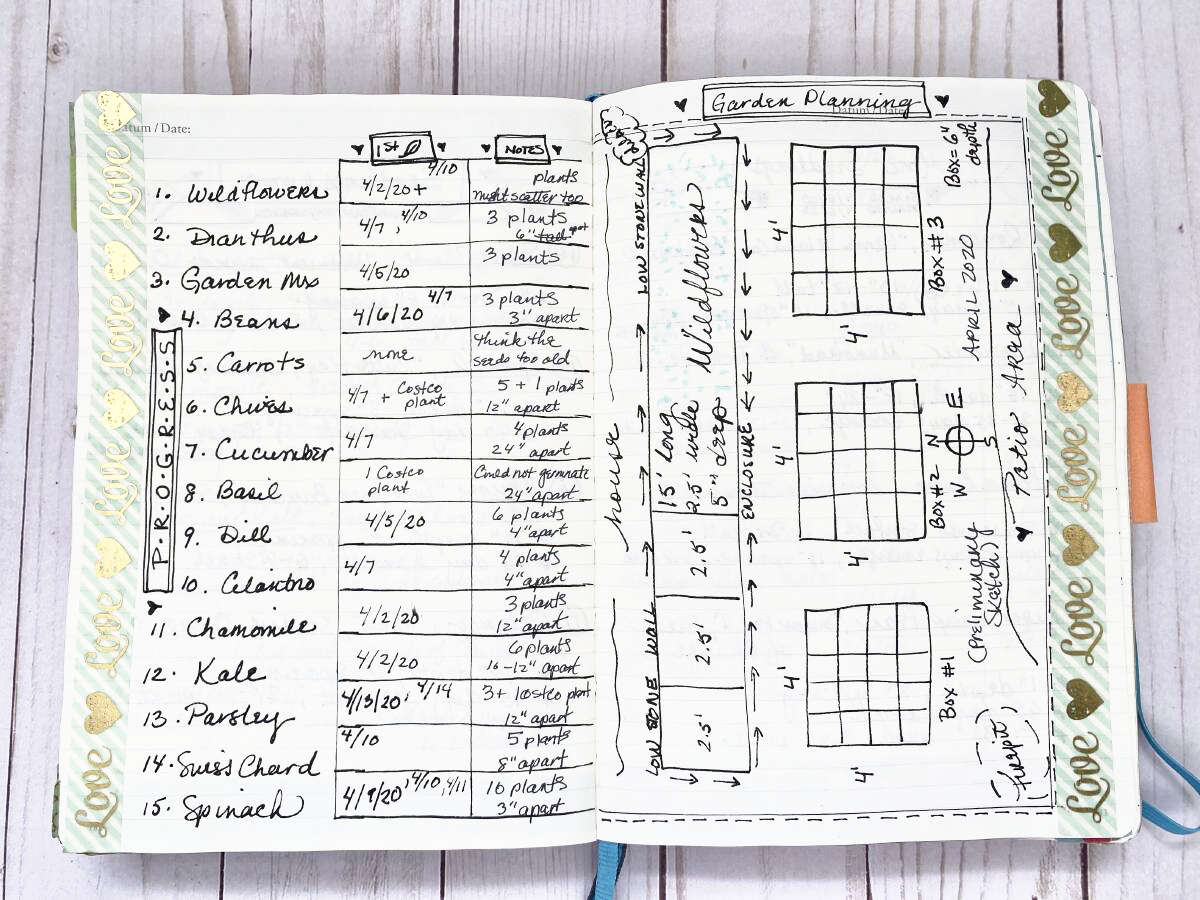 Datum / Date:
1st
NOTES
P.R.O.G.R.E.S.S.
1. Wildflowers 4/2/20 + 4/10 plants
might scatter too
2. Dianthus 4/7, 4/10 3 plants
6" tall apart
3. Garden Mix 4/5/20 3 plants
4. Beans 4/6/20 4/7 3 plants
3" apart
5. Carrots none think the
seeds too old
6. Chives 4/7 + Costco plant 5 + 1 plants
12" apart
7. Cucumber 4/7 4 plants
24" apart
8. Basil 1 Costco plant Could not germinate
24" apart
9. Dill 4/5/20 6 plants
4" apart
10. Cilantro 4/7 4 plants
4" apart
11. Chamomile 4/2/20 3 plants
12" apart
12. Kale 4/2/20 6 plants
10-12" apart
13. Parsley 4/13/20, 4/14 3 + 1 Costco plant
12" apart
14. Swiss Chard 4/10 5 plants
8" apart
15. Spinach 4/9/20, 4/10, 4/11 10 plants
3" apart
Love
Love
Love
Love
Love
Love
Garden Planning
Datum / Date:
LOW STONE WALL
house
LOW STONE WALL
Wildflowers
15' long
2.5' wide
5" deep
2.5'
2.5'
2.5'
ENCLOSURE
4'
4'
Box #3
Box = 6"
depth
4'
4'
Box #2
4'
4'
Box #1
N
E
S
W
APRIL 2020
(Preliminary
Sketch)
Patio Area
firepit
Love
Love
Love
Love
Love